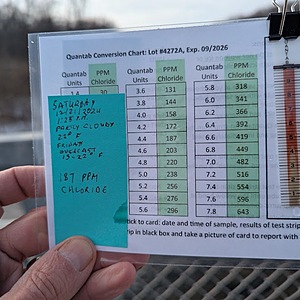 Quantab Conversion Chart: Lot #4272A, Exp. 09/2026
Quantab Units PPM Chloride Quantab Units PPM Chloride Quantab Units PPM Chloride
1.4 30 3.6 131 5.8 318
3.8 144 6.0 341
4.0 158 6.2 366
4.2 172 6.4 392
4.4 187 6.6 419
4.6 203 6.8 449
4.8 220 7.0 482
5.0 238 7.2 516
5.2 256 7.4 554
5.4 276 7.6 596
5.6 296 7.8 643
SATURDAY
12/21/2024
PARTLY CLOUDY
FRIDAY
OVERCAST
187 PPM
CHLORIDE
ick to card: date and time of sample, results of test strip
rip in black box and take a picture of card to report with